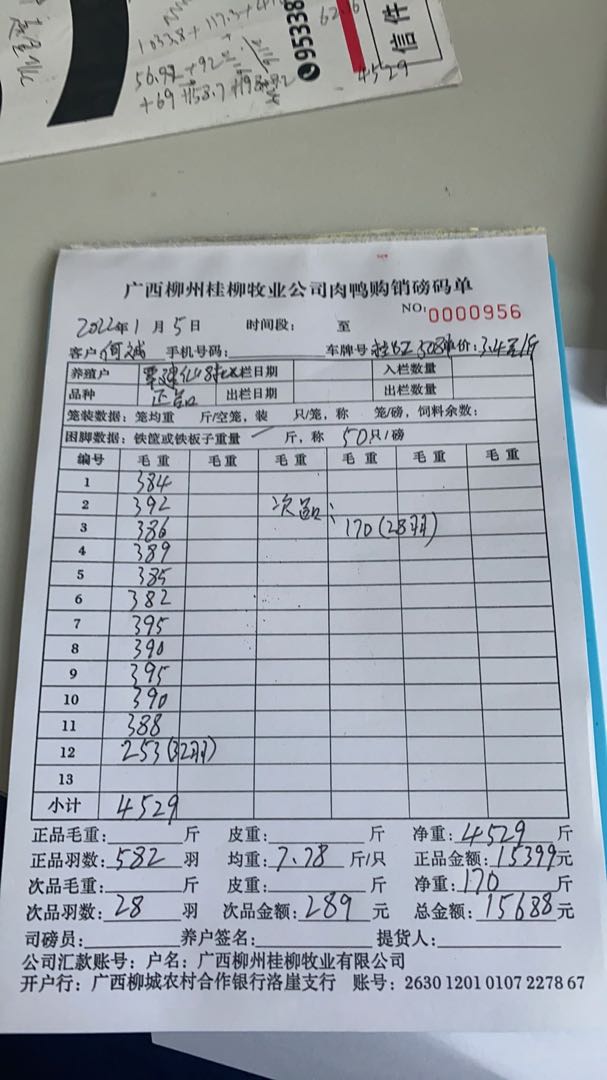 1033.8+117.3+
56.92+92
+69+158.7+198
62.6
95338
信件
4529
广西柳州桂柳牧业公司肉鸭购销磅码单
NO: 0000956
2022年1月5日 时间段： 至
客户 何斌 手机号码： 车牌号 桂BZ 308 单价：3.4
养殖户 入栏日期 入栏数量
品种 正品 出栏日期 出栏数量
笼装数据：笼均重 斤/空笼，装 只/笼，称 笼/磅，饲料余数：
困脚数据：铁筐或铁板子重量 斤，称 50只/磅
编号 毛重 毛重 毛重 毛重 毛重 毛重
1 384
2 392 次品：
3 386 170(28羽)
4 389
5 385
6 382
7 395
8 390
9 395
10 390
11 388
12 253(32羽)
13
小计 4529
正品毛重： 斤 皮重： 斤 净重：4529 斤
正品羽数：582 羽 均重：7.78 斤/只 正品金额：15399元
次品毛重： 斤 皮重： 斤 净重：170 斤
次品羽数：28 羽 次品金额：289 元 总金额：15688元
司磅员： 养户签名： 提货人：
公司汇款账号：户名：广西柳州桂柳牧业有限公司
开户行：广西柳城农村合作银行洛崖支行 账号：2630 1201 0107 2278 67